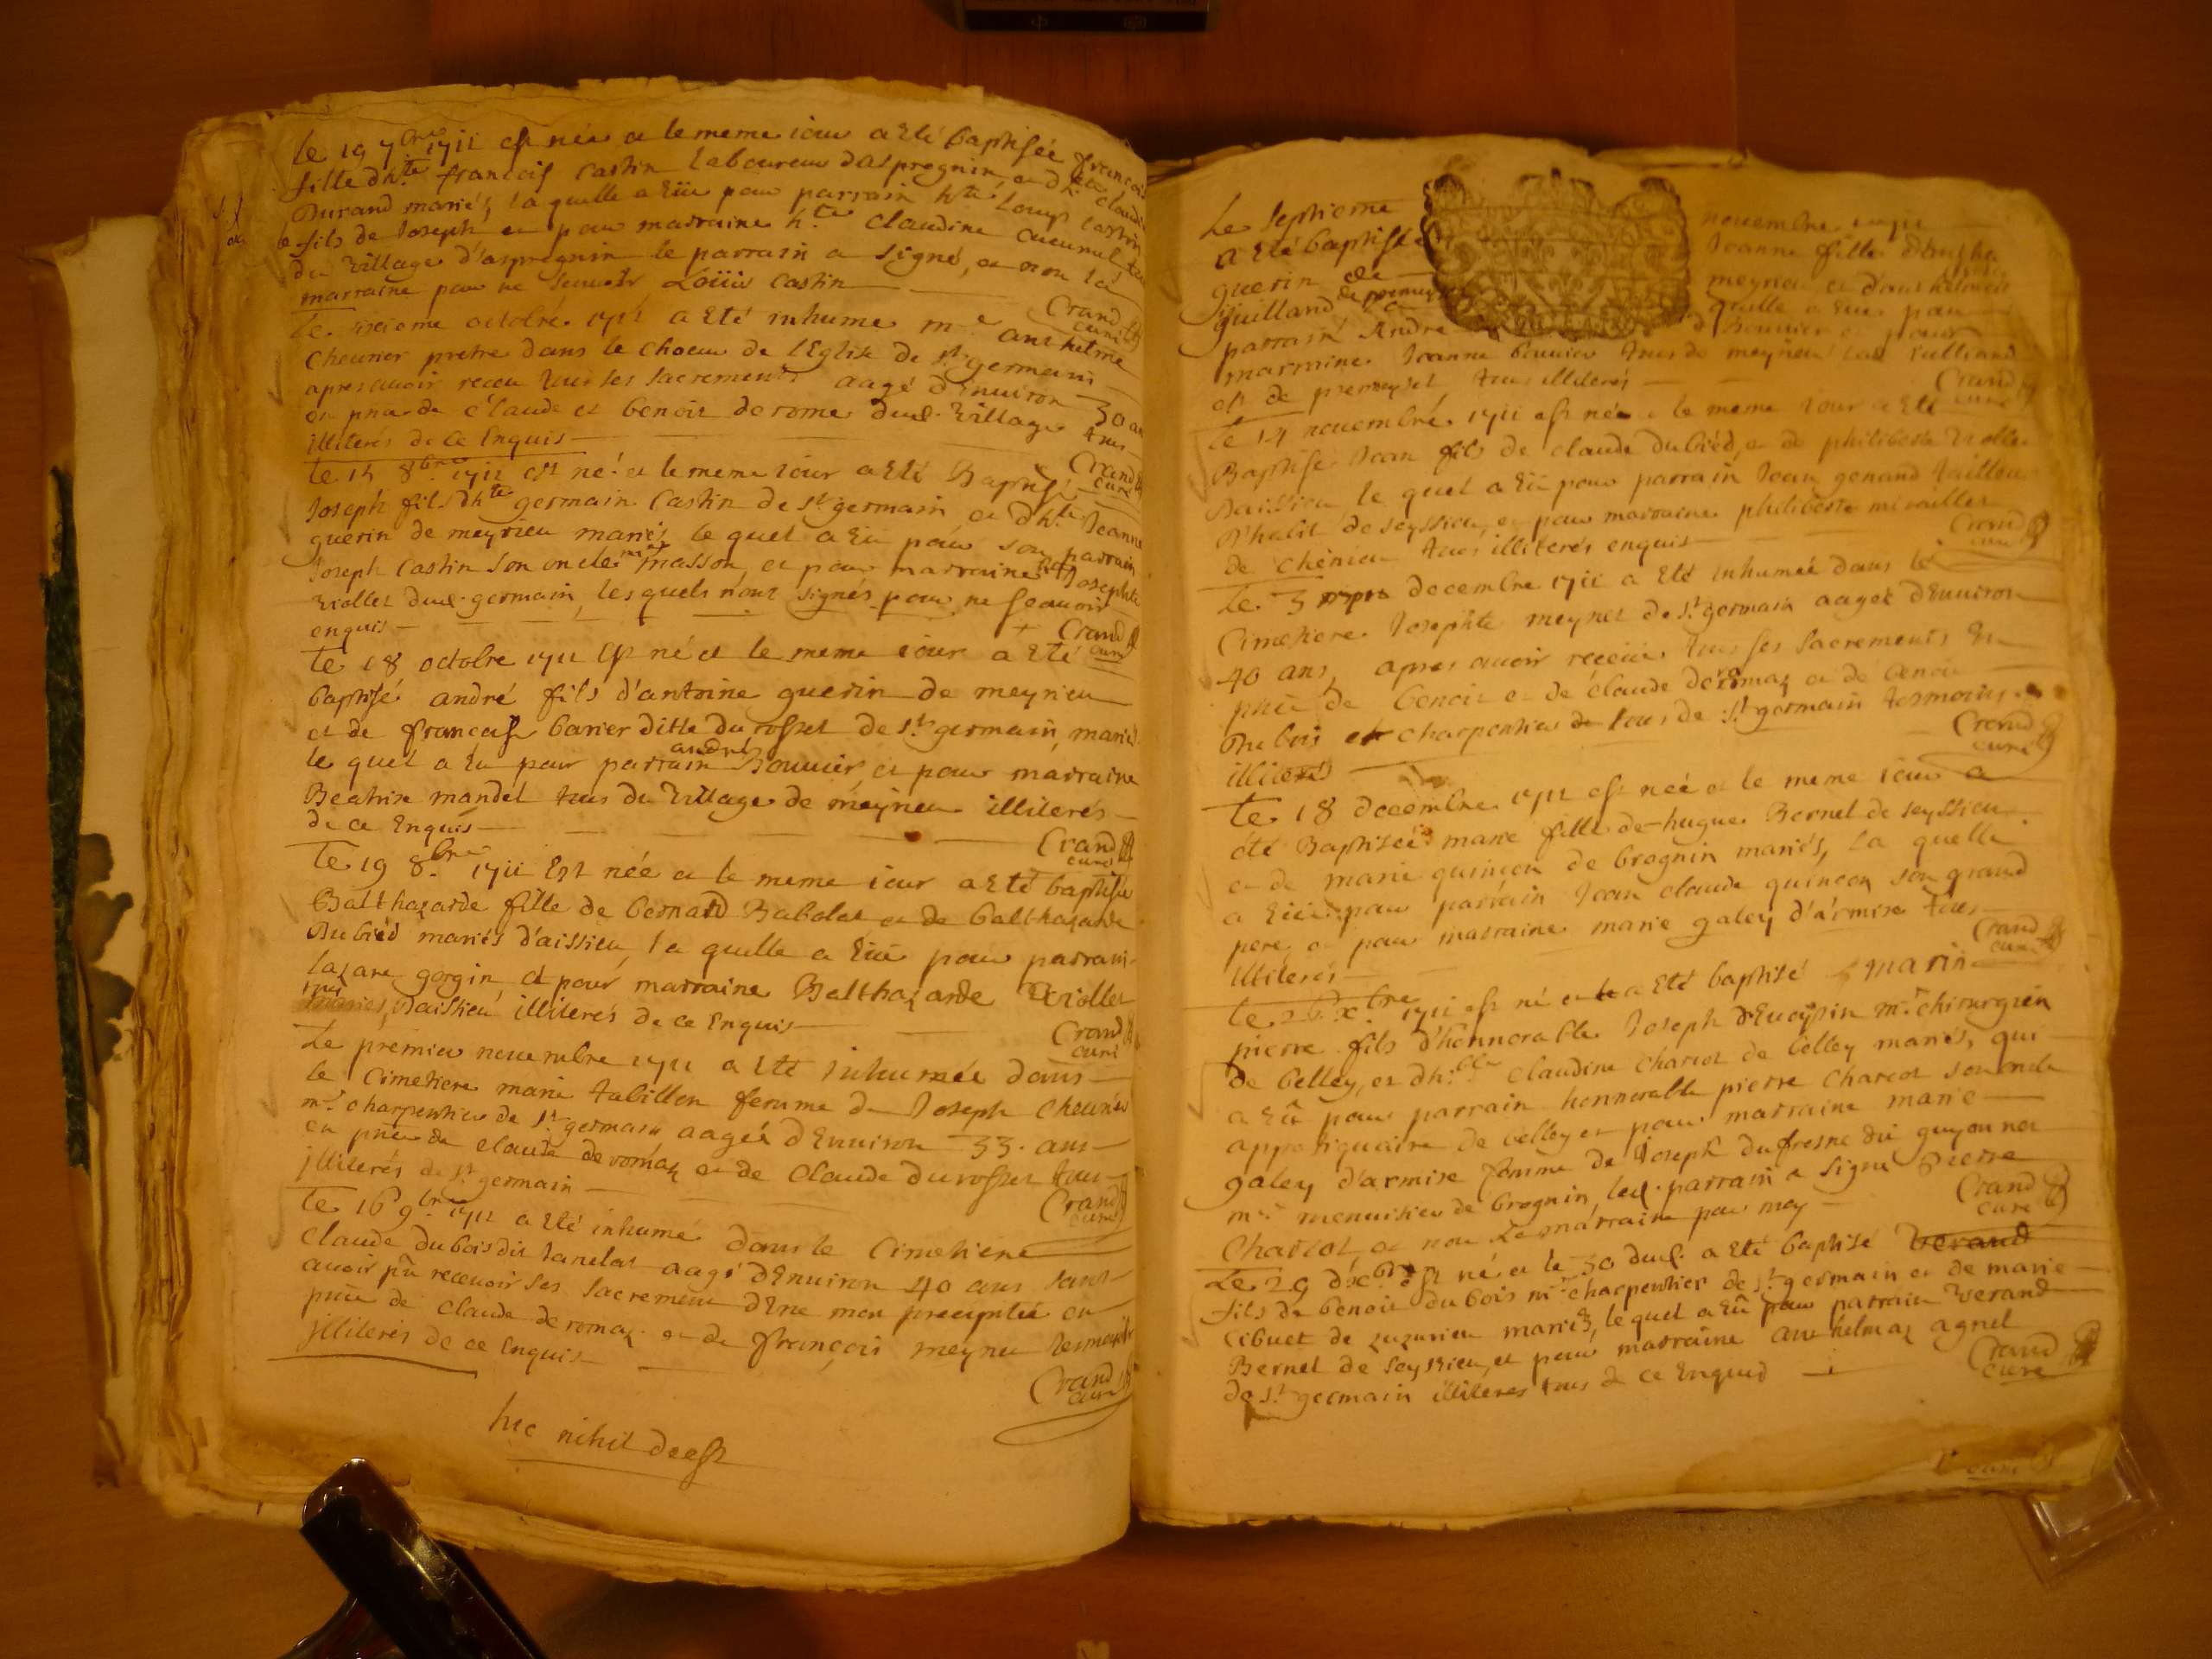 le 19 7bre 1711 est née et le meme iour a eté baptisée francois
fille d'hte francois castin laboureur d'aspregnin et d'hte claudi
Durand mariés, la quelle a eüe pour parrain hte Louys castin
fils de Joseph et pour marraine hte claudine
du village d'aspregnin le parrain a signé, et non la
marraine pour ne scavoir Loüis castin
Crand curé
le sixieme octobre 1711 a eté inhume mre anthelme
cheurier pretre dans le choeur de l'Eglise de st germain
apres avoir receu tous ses sacrements aagé d'enuiron 30 an
en pnce de claude et benoit derome dud. village tous
illiterés de ce enquis
Crand curé
le 15 8bre 1711 est né et le meme iour a eté Baptisé
Joseph fils d'hte germain castin de st germain et d'hte Jeanne
guerin de meyrieu mariés, le quel a eü pour son parrain
Joseph castin son oncle me masson, et pour marraine Josephte
viollet dud. germain, lesquels n'ont signés pour ne scauoir
enquis
+ Crand curé
le 18 octobre 1711 est né et le meme iour a eté
baptisé andré fils d'antoine guerin de meyrieu
et de francoise barier ditte durosset de st germain, mariés
le quel a eu pour parrain andré Bouuier, et pour marraine
Beatrise mandel tous du village de meyrieu illiterés
de ce Enquis
Crand curé
le 19 8bre 1711 Est née et le meme iour a eté baptisee
Balthazarde fille de bernard Babolat et de balthazarde
Dubiéd mariés d'aissieu, la quelle a eüe pour parrain
lazare gorgin et pour marraine Balthazarde viollet
tous d'aissieu illiterés de ce Enquis
Crand curé
Le premier nouembre 1711 a eté inhumée dans
le cimetiere marie tabillon femme de Joseph cheurier
me charpentier de st germain aagée d'Enuiron 33. ans
en pnce de claude deromaz et de claude durosset tous
illiterés de st germain
Crand curé
le 16 9bre 1711 a eté inhumé dans le cimetiere
claude dubois dit Janelas aagé d'Enuiron 40 ans sans
auoir pü receuoir ses sacrements d'Une mort precipitée en
pnce de claude deromaz et de françois meynet tesmoins
illiterés de ce Enquis
Crand curé
hic nihil deest
Le septieme nouembre 1711
a eté baptisée Jeanne fille d'anthe
guerin de meyrieu et d'anthelmete
guilland de premeyset la quelle a eüe pour
parrain Andre Bouuier et pour
marraine Jeanne bouuier tous de meyrieu
est de premeyset, tous illiterés
Crand curé
le 14 nouembre 1711 est né et le meme iour a eté
Baptisé Jean fils de claude dubiéd, et de philiberte viollet
D'aissieu le quel a eü pour parrain Jean genand tailleur
D'habit de seyssieu, et pour marraine philiberte mirailler
de chenieu tous illiterés enquis
Crand curé
le 3 decembre 1711 a eté inhumée dans le
cimetiere Josephte meynet de st germain aagée d'Enuiron
40 ans, apres auoir receüe tous ses sacrements En
pnce de benoit et de claude deromaz et de benoit
Dubois charpentier tous de st germain tesmoins
illiterés
Crand curé
Le 18 decembre 1711 est neé et le meme iour a
été Baptiseé marie fille de hugue Bernel de seyssieu
et de marie quinçon de brognin mariés, la quelle
a eüe pour parrain Jean claude quinçon son grand
pere et pour marraine marie galey d'armise tous
illiterés
Crand curé
le 26 xbre 1711 est né et a eté baptisé marin
pierre fils d'honnorable Joseph d'Eueysin me chirurgien
de belley, et d'hble claudine charcot de belley mariés, qui
a eû pour parrain honnorable pierre charcot son oncle
appotiquaire de belley et pour marraine marie
galey d'armise femme de Joseph dufresne dit guyonnet
me menuisier de brognin, led. parrain a signé Pierre
Charcot et non la marraine pour ney
Crand curé
Le 29 dexbre est né et le 30 dud. a eté baptisé Verand
fils de benoit dubois me charpentier de st germain et de marie
cibuet de zuzurieu mariés, le quel a eû pour parrain verand
Bernel de seyssieu, et pour marraine anthelmaz agnel
de st germain illiterés tous de ce Enquis
Crand curé